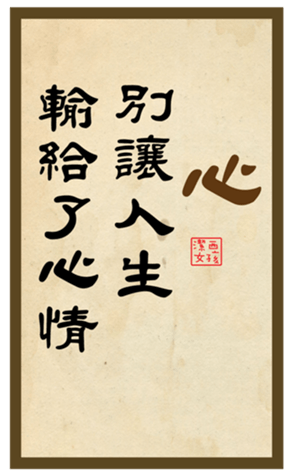 心
別讓人生
輸給了心情
潔西
女孩